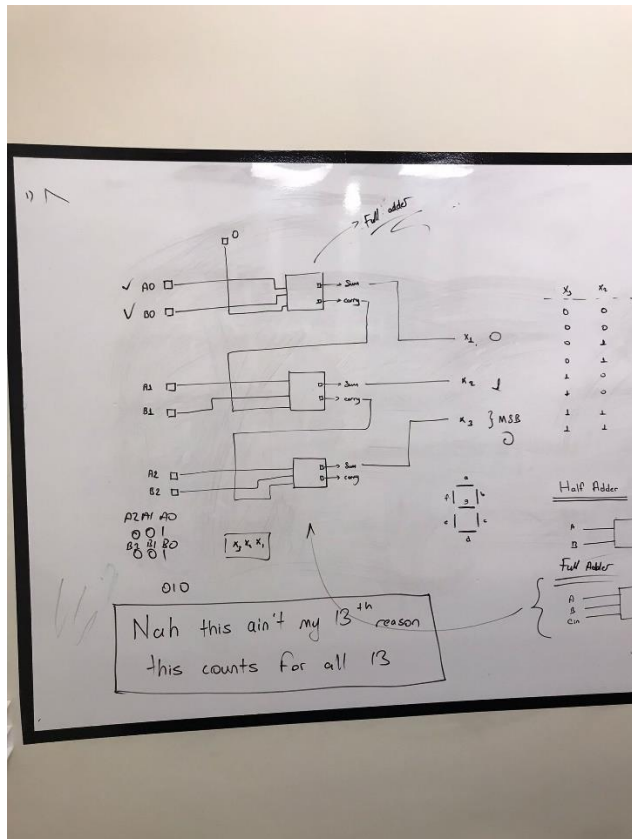 1)
Full adder
0
✓ A0
Sum
carry
✓ B0
x1 0
A1
Sum
carry
B1
x2 1
x3 } MSB
0
A2
Sum
carry
B2
A2 A1 A0
0 0 1
B2 B1 B0
0 0 1
x3 x2 x1
010
x3 x2
0 0
0 0
0 1
0 1
1 0
1 0
1 1
1 1
a
f b
g
e c
d
Half Adder
A
B
Full Adder
A
B
Cin
Nah this ain't my 13th reason
this counts for all 13